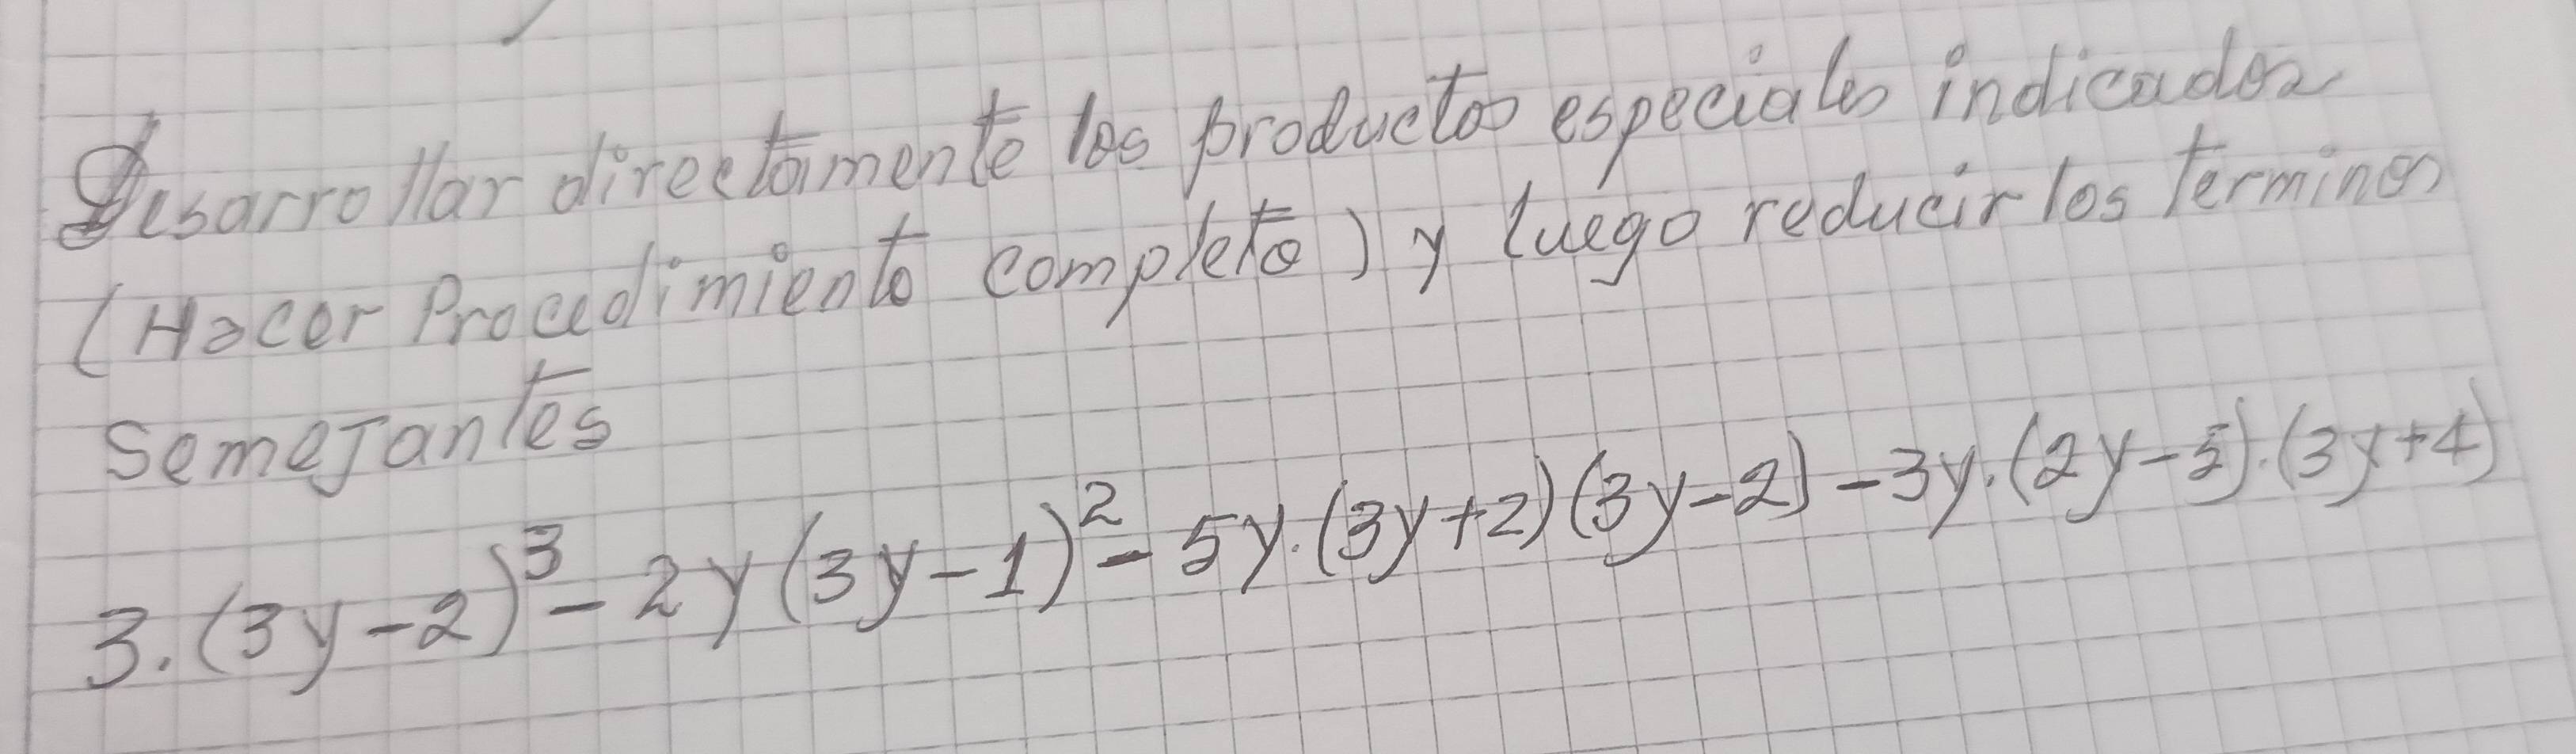 Desarrollar directamente los productos especiales indicados
(Hacer Procedimiento completo) y luego reducir los Terminos
semeJantes
3. (3y-2)³ - 2y(3y-1)² - 5y.(3y+2)(3y-2) - 3y.(2y-5).(3y+4)